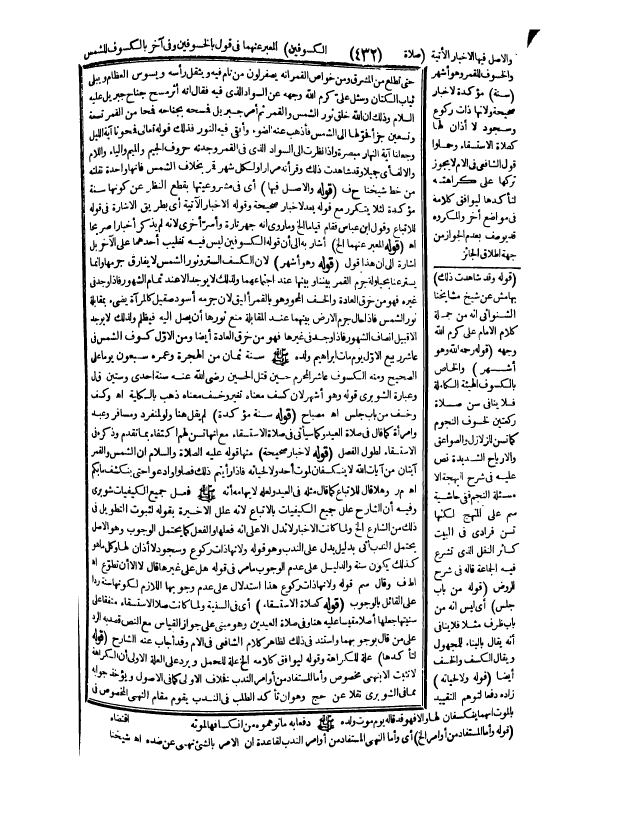 (صلاة (٤٣٢) الكسوفين) المعبر عنهما فى قول بالخسوفين وفى آخر بالكسوف للشمس
والاصل فيها الاخبار الآتية
والخسوف للقمر وهو أشهر
(سنة) مؤكدة لاخبار
صحيحة ولانها ذات ركوع
وسجود لا أذان لها
كصلاة الاستسقاء وحملوا
قول الشافعى فى الام لا يجوز
تركها على كراهته
لتأكدها ليوافق كلامه
فى مواضع أخر والمكروه
قد يوصف بعدم الجواز من
جهة اطلاق الجائز
(قوله وقد شاهدت ذلك)
بهامش عن شيخ مشايخنا
الشنوانى انه من جملة
كلام الامام على كرم الله
وجهه (قوله رحمه الله وهو
أشهر) والخاص
بالكسوف الهيئة الكاملة
فلا ينافى سن صلاة
ركعتين لخسوف النجوم
كما تسن للزلازل والصواعق
والرياح الشديدة نص
عليه فى شرح البهجة اه
مسئلة النجم فى حاشية
سم على المنهج لكنها
تسن فرادى فى البيت
كسائر النفل الذى تشرع
فيه الجماعة قاله فى شرح
الروض (قوله من باب
جلس) أى ليس انه من
باب ظرف مثلا فلا ينافى
أنه يقال بالبناء للمجهول
ويقال انكسف وانخسف
أيضا (قوله ولا لحياته)
زاده دفعا لتوهم التقييد
حتى تطلع من المشرق ومن خواص القمر انه يصفر لون من نام فيه ويثقل رأسه ويسوس العظام ويبلى
ثياب الكتان وسئل على كرم الله وجهه عن السواد الذى فيه فقال انه أثر مسح جناح جبريل عليه
السلام وذلك ان الله خلق نور الشمس والقمر ثم أمر جبريل فمسحه بجناحه فمحا من القمر تسعة
وتسعين جزأ فحولها الى الشمس فأذهب عنه الضوء وأبقى فيه النور فذلك قوله تعالى فمحونا آية الليل
وجعلنا آية النهار مبصرة واذا نظرت الى السواد الذى فى القمر وجدته حروفا الجيم والميم والياء واللام
والالف أى جميلا وقد شاهدت ذلك وقرأته مرارا ولكل شهر قمر بخلاف الشمس فانها واحدة نقلته
من خط شيخنا ح ف (قوله والاصل فيها) أى فى مشروعيتها بقطع النظر عن كونها سنة
مؤكدة لئلا يتكرر مع قوله بعد لاخبار صحيحة وقوله الاخبار الآتية أى بطريق الاشارة فى قوله
للاتباع وقول ابن عباس فقام قياما الخ وماروى انه جهر تارة وأسر أخرى لانه لم يذكر أخبارا صريحا
اه (قوله المعبر عنهما الخ) أشار به الى أن قوله الكسوفين ليس فيه تغليب أحدهما على الآخر بل
اشارة الى ان هذا قول (قوله وهو أشهر) لان الكسف الستر ونور الشمس لا يفارق جرمها وانما
يستر عنا بحيلولة جرم القمر بيننا وبينها عند اجتماعهما ولذلك لا يوجد الا عند تمام الشهور فاذا وجد فى
غيره فهو من خرق العادة والخسف المحو وهو بالقمر أليق لان جرمه أسود صقيل كالمرآة يضىء بمقابلة
نور الشمس فاذا حال جرم الارض بينهما عند المقابلة منع نورها أن يصل اليه فيظلم ولذلك لا يوجد
الا قبيل انصاف الشهور فاذا وجد فى غيرها فهو من خرق العادة أيضا ومن الاول كسوف الشمس فى
عاشر ربيع الاول يوم مات ابراهيم ولده صلى الله عليه وسلم سنة ثمان من الهجرة وعمره سبعون يوما على
الصحيح ومنه الكسوف عاشر المحرم حين قتل الحسين رضى الله عنه سنة احدى وستين ق ل
وعبارة الشوبرى قوله وهو أشهر لان كسف معناه تغير وخسف معناه ذهب بالكلية اه وكسف
وخسف من باب جلس اه مصباح (قوله سنة مؤكدة) لم يقل هنا ولو لمنفرد ومسافر وعبد
وامرأة كما قال فى صلاة العيد وكما سيأتى فى صلاة الاستسقاء مع انها تسن لهم اكتفاء بما تقدم وذكره فى
الاستسقاء لطول الفصل (قوله لاخبار صحيحة) منها قوله عليه الصلاة والسلام ان الشمس والقمر
آيتان من آيات الله لا ينكسفان لموت أحد ولا لحياته فاذا رأيتم ذلك فصلوا وادعوا حتى ينكشف ما بكم
اه م ر وهلا قال للاتباع كما قال مثله فى العيد ولعله لايهامه أنه صلى الله عليه وسلم فعل جميع الكيفيات شوبرى
وفيه أن الشارح علل جميع الكيفيات بالاتباع لانه علل الاخيرة بقوله لثبوت التطويل فى
ذلك من الشارع الخ ولما كانت الاخبار لا تدل الا على انه فعلها والفعل كما يحتمل الوجوب وهو الاصل
يحتمل الندب أتى بدليل يدل على الندب وهو قوله ولانها ذات ركوع وسجود لا أذان لها وكل ما هو
كذلك يكون سنة والدليل على عدم الوجوب ما مر فى قوله هل على غيرها قال لا الا أن تطوع اه
اط ف وقال سم قوله ولانها ذات ركوع هذا استدلال على عدم وجوبها اللازم لكونها سنة ردا
على القائل بالوجوب (قوله كصلاة الاستسقاء) أى فى السنية ولما كانت صلاة الاستسقاء متفقا على
سنيتها جعلها أصلا مقيسا عليه هنا وفى صلاة العيدين وهو مبنى على جواز القياس مع النص قصد به الرد
على من قال بوجوبهما واستند فى ذلك لظاهر كلام الشافعى فى الام وقد أجاب عنه الشارح (قوله
لتأكدها) علة للكراهة وقوله ليوافق كلامه الخ علة للحمل ويرد على العلة الاولى أن الكراهة
لا تثبت الا بنهى مخصوص وأما المستفاد من أوامر الندب فخلاف الاولى كما فى الاصول ويؤخذ جوابه
مما فى الشوبرى نقلا عن حج وهو ان تأكد الطلب فى الندب يقوم مقام النهى المخصوص فى
اقتضاء
بالموت اسهما ينكسفان لها والا فهو قد قاله يوم موت ولده صلى الله عليه وسلم دفعا به ما توهموه من انكسافها لموته
(قوله وأما المستفاد من أوامر الخ) أى وأما النهى المستفاد من أوامر الندب لقاعدة ان الامر بالشئ نهى عن ضده اه شيخنا